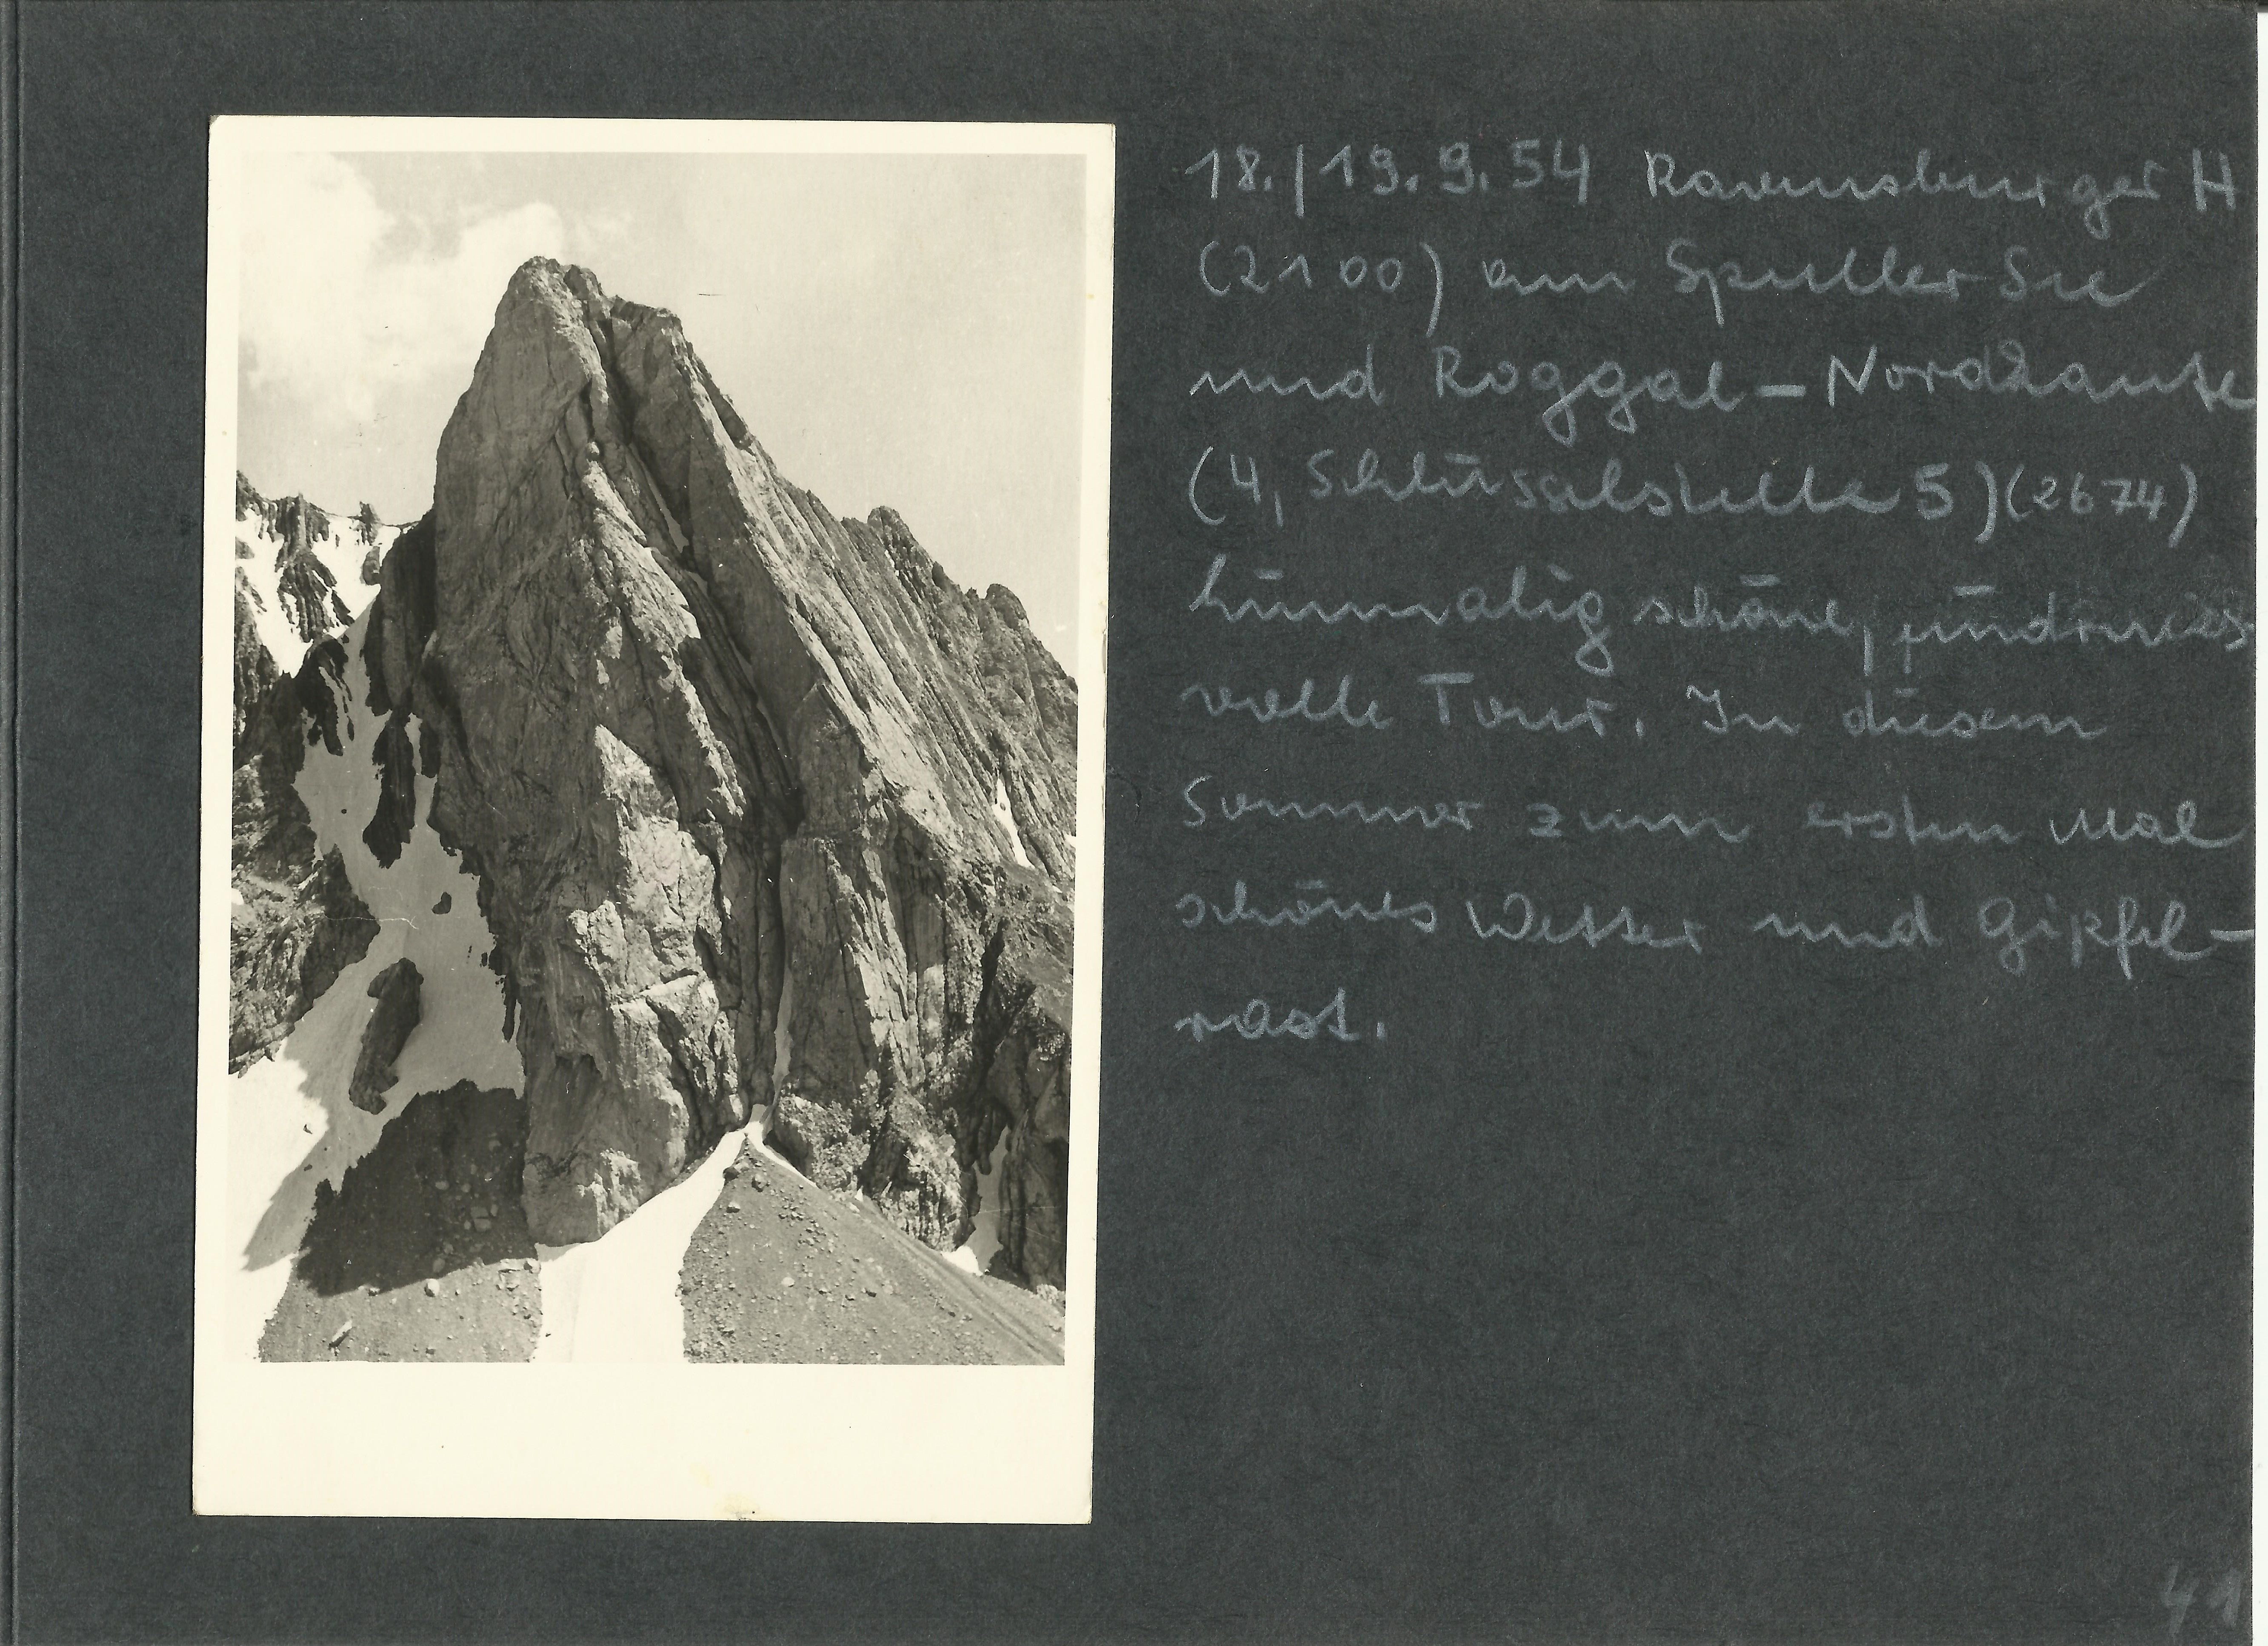 18./19.9.54 Ravensburger H
(2100) am Spuller See
und Roggal-Nordkante
(4, Schlüsselstelle 5)(2674)
schöne,
volle Tour. In diesem
Sommer zum ersten Mal
schönes Wetter und Gipfel-
rast.
41